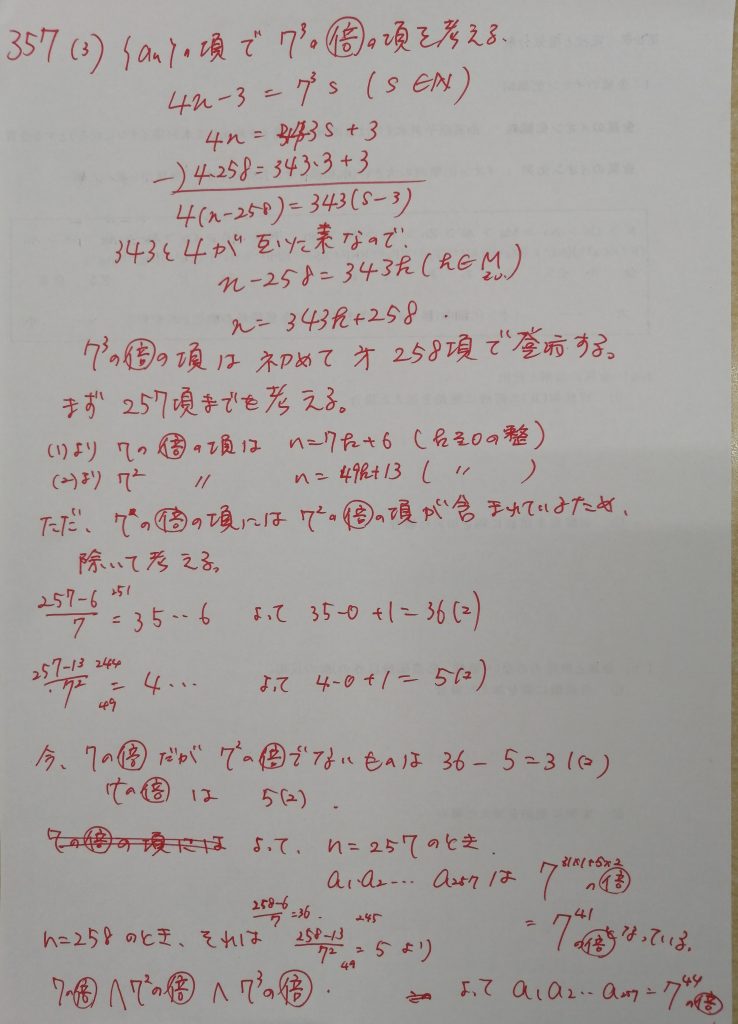 357 (3) {an}の項で 7³の倍の項を考える.
4n-3 = 7³s (s∈N)
4n = 343s + 3
-) 4·258 = 343·3 + 3
4(n-258) = 343(s-3)
343と4が互いに素なので.
n-258 = 343k (k∈
n = 343k+258.
7³の倍の項は初めて 258項で登場する。
まず 257項までを考える。
(1)より 7の倍の項は n=7k+6 (k≧0の整)
(2)より 7² 〃 n=49k+13 ( 〃 )
ただ、7の倍の項には 7²の倍の項が含まれているため、
除いて考える。
257-6/7 251 = 35…6 よって 35-0+1=36(コ)
257-13/7² 244/49 = 4… よって 4-0+1=5(コ)
今、7の倍だが 7²の倍でないものは 36-5=31(コ)
7²の倍は 5(コ).
よって、n=257のとき.
a₁·a₂… a₂₅₇は 7^{31×1+5×2}の倍
= 7⁴¹の倍となっている。
n=258のとき、それは 258-6/7=36. 258-13/7² 245/49 = 5より
7の倍∧7²の倍∧7³の倍. よって a₁a₂…a₂₅₇=7⁴⁴の倍